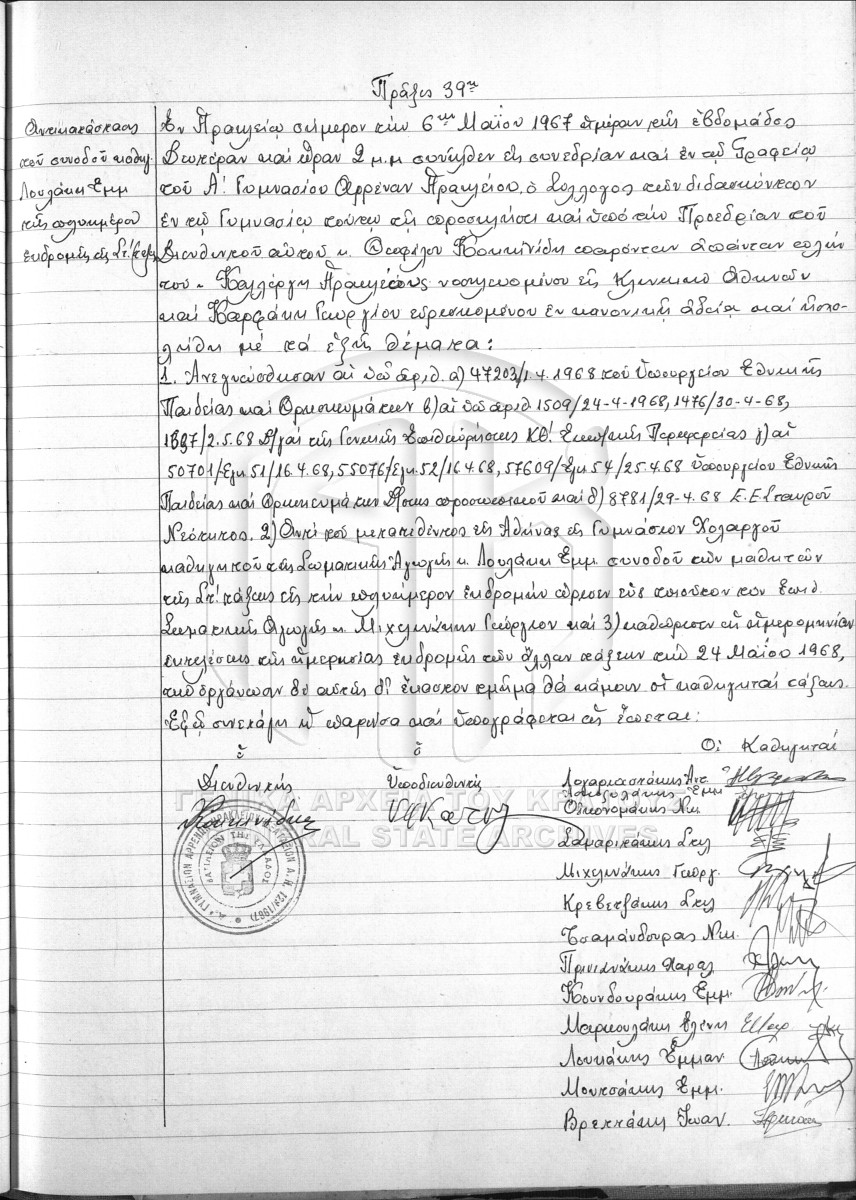 Πρᾶξις 39η
Ἀντικατάστασις
τοῦ συνοδοῦ καθηγ.
Λουλάκη Ἐμμ
τῆς πολυημέρου
ἐκδρομῆς τῆς Στ! τάξ.
Ἐν Ἡρακλείῳ σήμερον τὴν 6ην Μαΐου 1967 ἡμέραν τῆς ἑβδομάδος
Δευτέραν καὶ ὥραν 2 μ.μ συνῆλθεν εἰς συνεδρίαν καὶ ἐν τῷ Γραφείῳ
τοῦ Α! Γυμνασίου Ἀρρένων Ἡρακλείου, ὁ Σύλλογος τῶν διδασκόντων
ἐν τῷ Γυμνασίῳ τούτῳ τῇ προσκλήσει καὶ ὑπὸ τὴν Προεδρίαν τοῦ
Διευθυντοῦ αὐτοῦ κ. Θεοφίλου Κοκκινίδη παρόντων ἁπάντων πλὴν
τοῦ κ Καλλέργη Ἡρακλέους νοσηλευομένου εἰς Κλινικὴν Ἀθηνῶν
καὶ Καρφάκη Γεωργίου εὑρισκομένου ἐν κανονικῇ ἀδείᾳ καὶ ἠσχο-
λήθη μὲ τὰ ἑξῆς θέματα:
1. Ἀνεγνώσθησαν αἱ ὑπ' ἀριθ. α) 47203/1.4.1968 τοῦ Ὑπουργείου Ἐθνικῆς
Παιδείας καὶ Θρησκευμάτων β) αἱ ὑπ' ἀριθ 1509/24-4-1968, 1476/30-4-68,
/2.5.68 Δ/γαὶ τῆς Γενικῆς Ἐπιθεωρήσεως ΚΘ! Ἐκπ/τικῆς Περιφερείας γ) αἱ
50701/Ἐγκ.51/16.4.68, 55076/Ἐγκ.52/16.4.68, 57609/Ἐγκ.54/25.4.68 Ὑπουργείου Ἐθνικῆς
Παιδείας καὶ Θρησκευμάτων Δ/σεως προσωπικοῦ καὶ δ) 8781/29-4-68 Ε.Ε.Σταυροῦ
Νεότητος. 2) Ἀντὶ τοῦ μετατεθέντος εἰς Ἀθήνας εἰς Γυμνάσιον Χολαργοῦ
καθηγητοῦ τῆς Σωματικῆς Ἀγωγῆς κ. Λουλάκη Ἐμμ. συνοδοῦ τῶν μαθητῶν
τῆς Στ! τάξεως εἰς τὴν πολυήμερον ἐκδρομὴν ὥρισεν ὡς τοιοῦτον τὸν
Σωματικῆς Ἀγωγῆς κ. Μιχελινάκην Γεώργιον καὶ 3) καθώρισεν ὡς ἡμερομηνίαν
ἐκτελέσεως τῆς ἡμερησίας ἐκδρομῆς τῶν ἄλλων τάξεων τὴν 24 Μαΐου 1968,
τὴν ὀργάνωσιν δὲ αὐτῆς δι' ἕκαστον τμῆμα θὰ κάμουν οἱ καθηγηταὶ τάξεως.
Ἐφ' ᾧ συνετάγη ἡ παροῦσα καὶ ὑπογράφεται ὡς ἕπεται:
Οἱ Καθηγηταί
ὁ
Διευθυντής
ὁ
Ὑποδιευθυντής
Λογαριαστάκης Ἀντ.
Ἐμμ
Οἰκονομάκης Νικ.
Σαμαριτάκης Στυλ
Μιχελινάκης Γεώργ.
Κρεβετζάκης Στυλ
Τσαμάνδουρας Νικ.
Πρινιανάκης Χαραλ
Κουνδουράκης Ἐμμ.
Μαρκουλάκη Ἑλένη
Λουκάκης Ἐμμαν
Μουντσάκης Ἐμμ.
Βρεττάκης Ἰωαν.
ΓΕΝΙΚΑ ΑΡΧΕΙΑ ΤΟΥ ΚΡΑΤΟΥΣ
GENERAL STATE ARCHIVES
ΒΑΣΙΛΕΙΟΝ ΤΗΣ ΕΛΛΑΔΟΣ